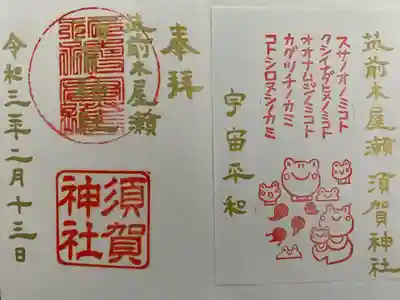 奉拝
筑前木屋瀬
須賀神社
令和三年二月十三日
筑前木屋瀬 須賀神社
スサノオノミコト
クシイナダヒメノミコト
オオナムジノミコト
カグツチノカミ
コトシロヌシノカミ
宇宙平和